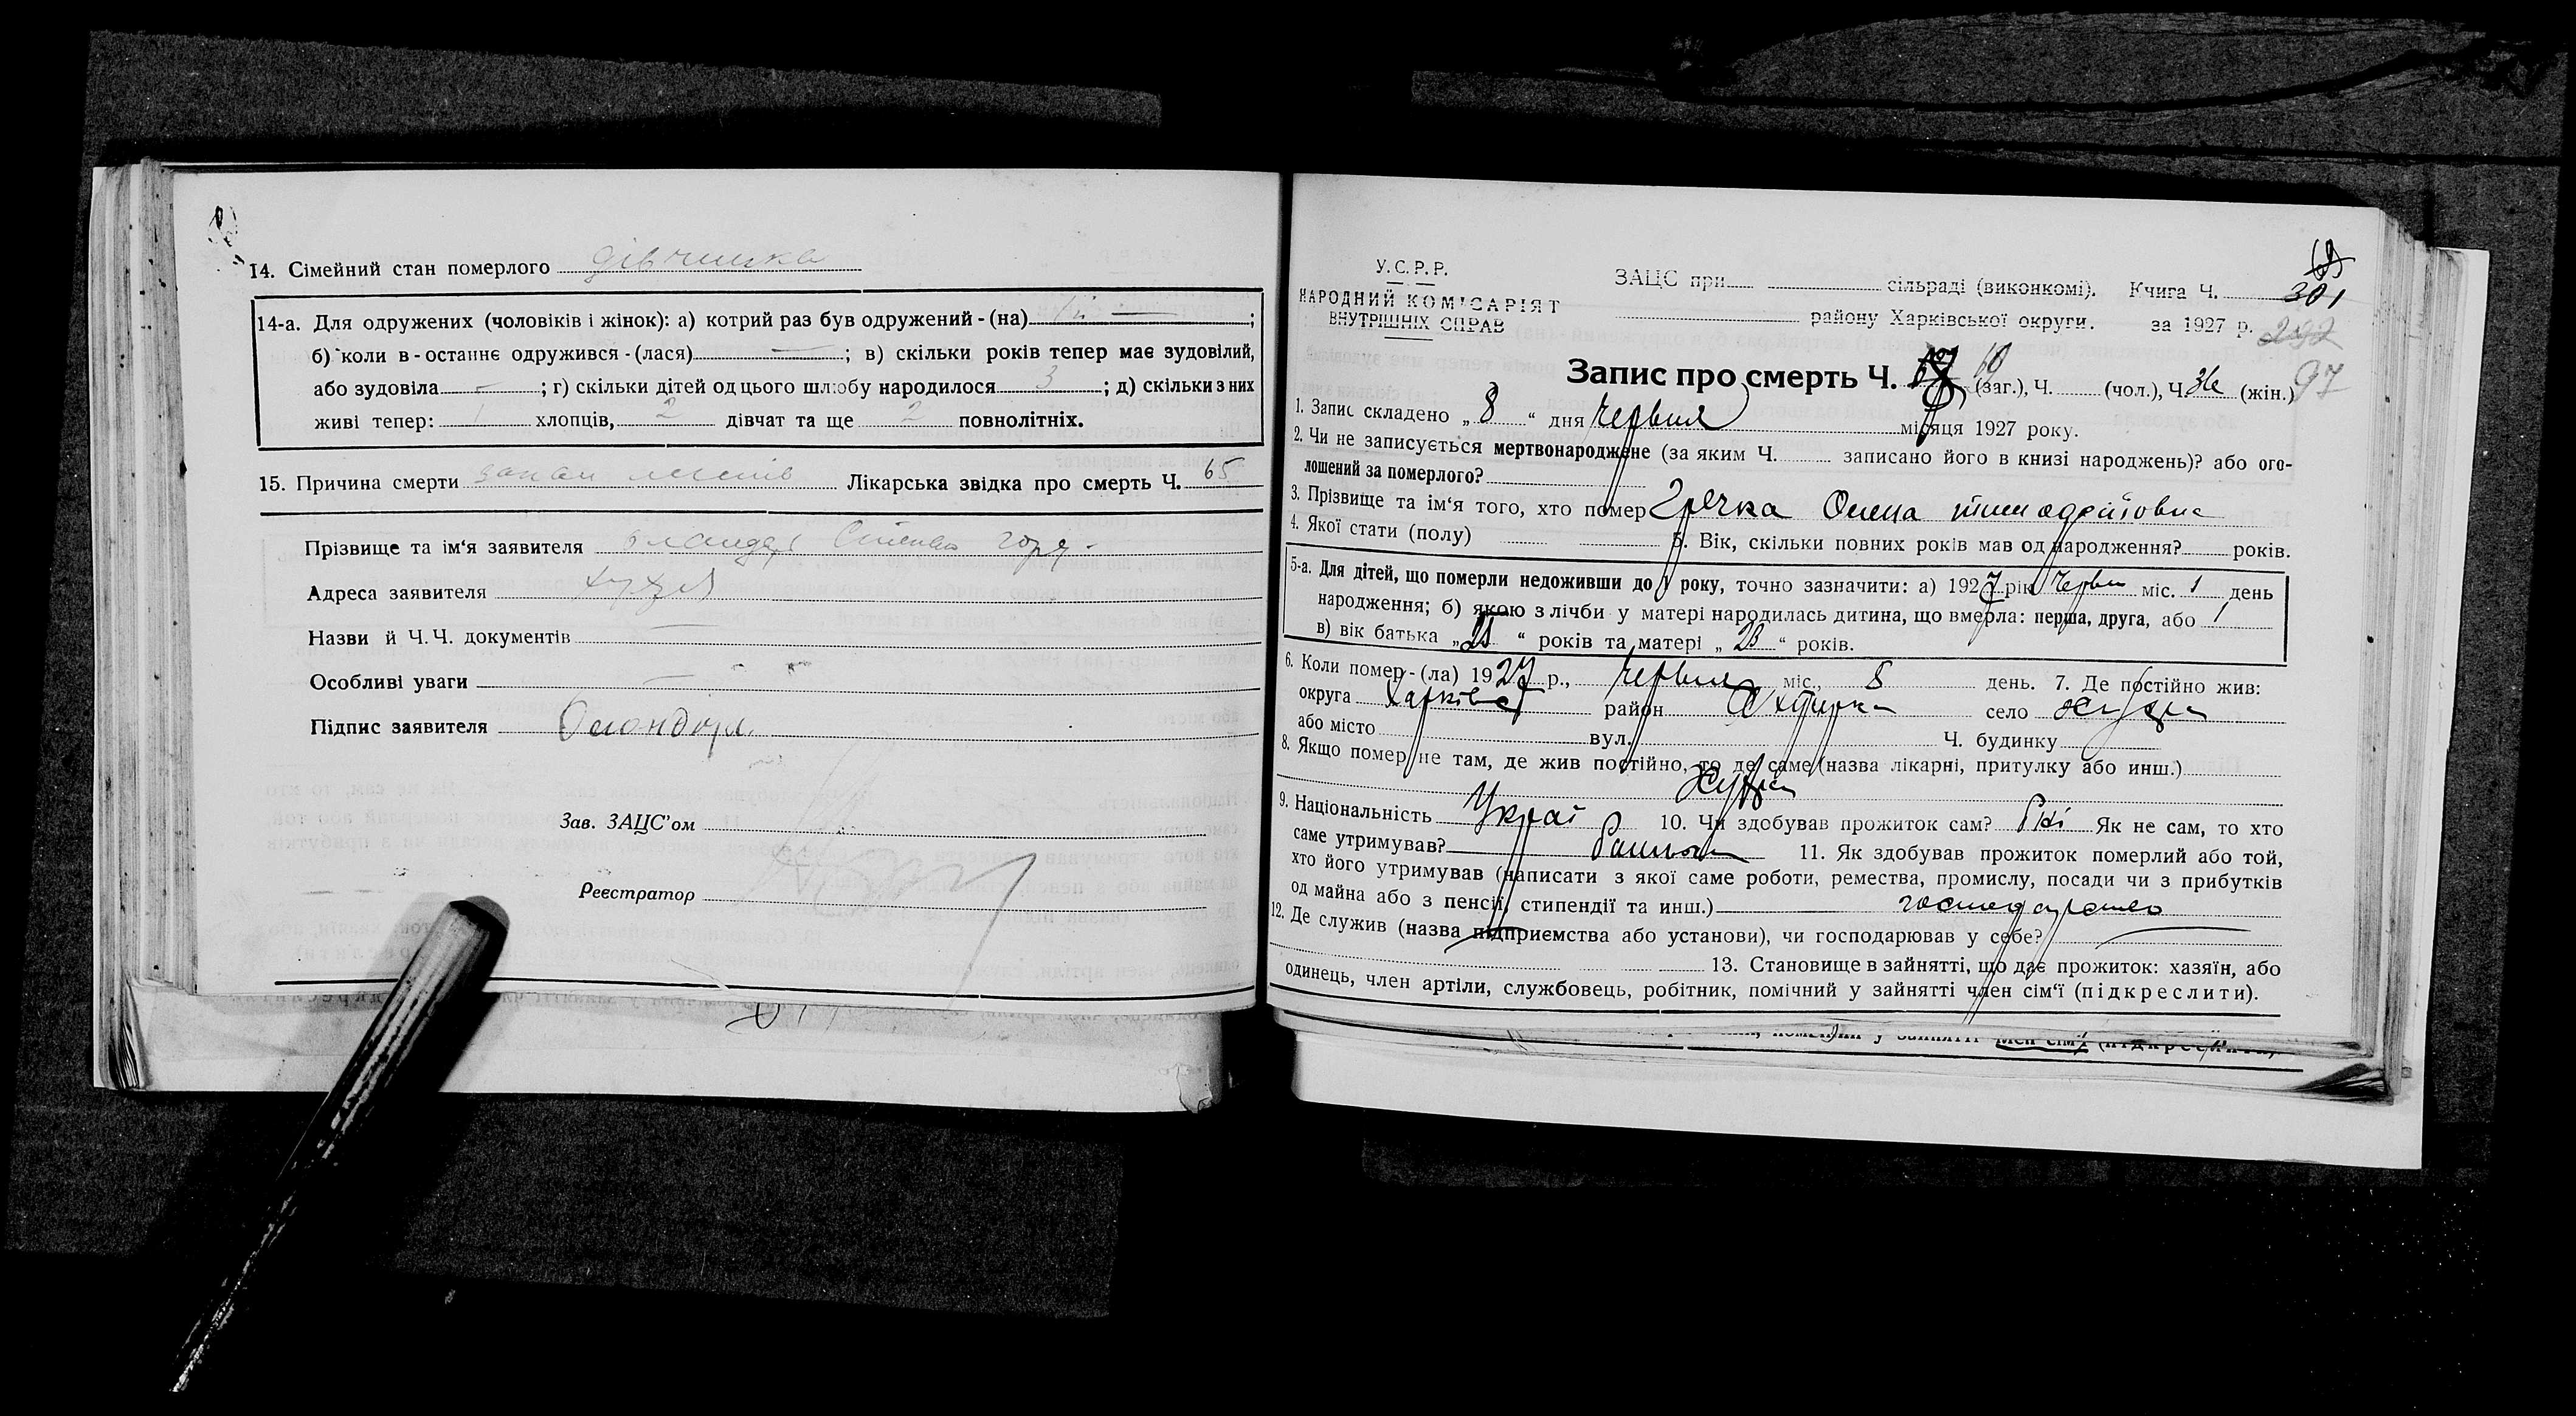 14. Сімейний стан померлого дівчинка
14-а. Для одружених (чоловіків і жінок): а) котрий раз був одружений-(на) ;
б) коли в-останнє одружився-(лася) — ; в) скільки років тепер має зудовілий,
або зудовіла — ; г) скільки дітей од цього шлюбу народилося 3 ; д) скільки з них
живі тепер: 1 хлопців, 2 дівчат та ще 2 повнолітніх.
15. Причина смерти Лікарська звідка про смерть Ч. 65
Прізвище та ім'я заявителя
Адреса заявителя
Назви й Ч.Ч. документів —
Особливі уваги —
Підпис заявителя
Зав. ЗАЦС'ом
Реєстратор
У.С.Р.Р.
НАРОДНИЙ КОМІСАРІЯТ
ВНУТРІШНІХ СПРАВ
ЗАЦС при сільраді (виконкомі). Книга Ч. 301
району Харківської округи. за 1927 р. 292
Запис про смерть Ч. (заг.), Ч. (чол.), Ч. 36 (жін.) 97
1. Запис складено „ 8 “ дня червня місяця 1927 року.
2. Чи не записується мертвонароджене (за яким Ч. записано його в книзі народжень)? або ого-
лошений за померлого?
3. Прізвище та ім'я того, хто помер Гречка Олена
4. Якої стати (полу) 5. Вік, скільки повних років мав од народження? років.
5-а. Для дітей, що померли недоживши до 1 року, точно зазначити: а) 1927 рік червн міс. 1 день
народження; б) якою з лічби у матері народилась дитина, що вмерла: перша, друга, або 1
в) вік батька „ “ років та матері „ 23 “ років.
6. Коли помер-(ла) 1927 р., червня міс., 8 день. 7. Де постійно жив:
округа Харківск район Охтирка село Хухра
або місто вул. Ч. будинку
8. Якщо помер не там, де жив постійно, то де саме (назва лікарні, притулку або инш.)
Хухра
9. Національність Украї 10. Чи здобував прожиток сам? Як не сам, то хто
саме утримував? 11. Як здобував прожиток померлий або той,
хто його утримував (написати з якої саме роботи, ремества, промислу, посади чи з прибутків
од майна або з пенсії, стипендії та инш.)
12. Де служив (назва підприємства або установи), чи господарював у себе?
13. Становище в зайнятті, що дає прожиток: хазяїн, або
одинець, член артіли, службовець, робітник, помічний у зайнятті член сім'ї (підкреслити).